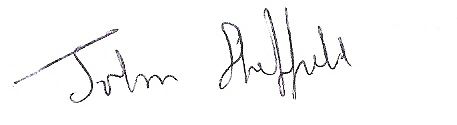 John Sheffield